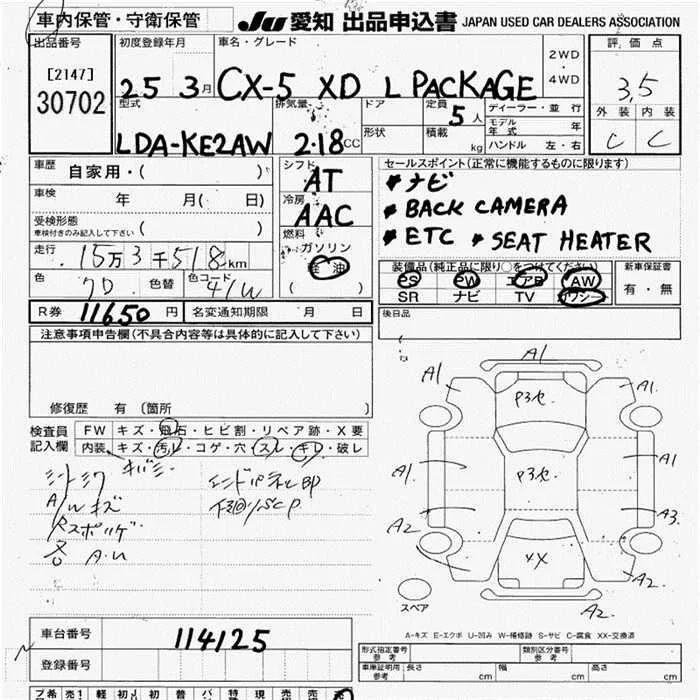 車内保管・守衛保管
JU 愛知 出品申込書 JAPAN USED CAR DEALERS ASSOCIATION
出品番号
[2147]
30702
初度登録年月
25 3月
車名・グレード
CX-5 XD L PACKAGE
2WD
・
4WD
評価点
3.5
外装 内装
C C
型式
LDA-KE2AW
排気量
2.18 CC
ドア
形状
定員
5人
積載 kg
ディーラー・並行
モデル年式 年
ハンドル 左・右
車歴 自家用・( )
車検 年 月( 日)
受検形態
車検付きのみ記入して下さい ・( )
走行 15万3千518km
色 色替 色コード
41W
シフト
AT
冷房
AAC
燃料
ガソリン
軽油
( )
セールスポイント(正常に機能するものに限ります)
* ナビ
* BACK CAMERA
* ETC * SEAT HEATER
装備品(純正品に限り○をつけてください)
PS PW エアB AW
SR ナビ TV カワシート
新車保証書
有・無
後日品
R券 11650 円 名変通知期限 月 日
注意事項申告欄(不具合内容等は具体的に記入して下さい)
修復歴 有 〔箇所 〕
検査員
記入欄
FW キズ・飛石・ヒビ割・リペア跡・X要
内装 キズ・汚れ・コゲ・穴・スレ・キレ・破レ
A/Wキズ
エンドパネルBP
A1
A1
P3セ
A1
A1
P3セ
A1
A2
A3
4X
A2
A2
スペア
A-キズ E-エクボ U-凹み W-補修跡 S-サビ C-腐食 XX-交換済
車台番号 114125
登録番号
形式指定番号
参考
類別区分番号
参考
車庫証明用
参考
長さ cm 幅 cm 高さ cm